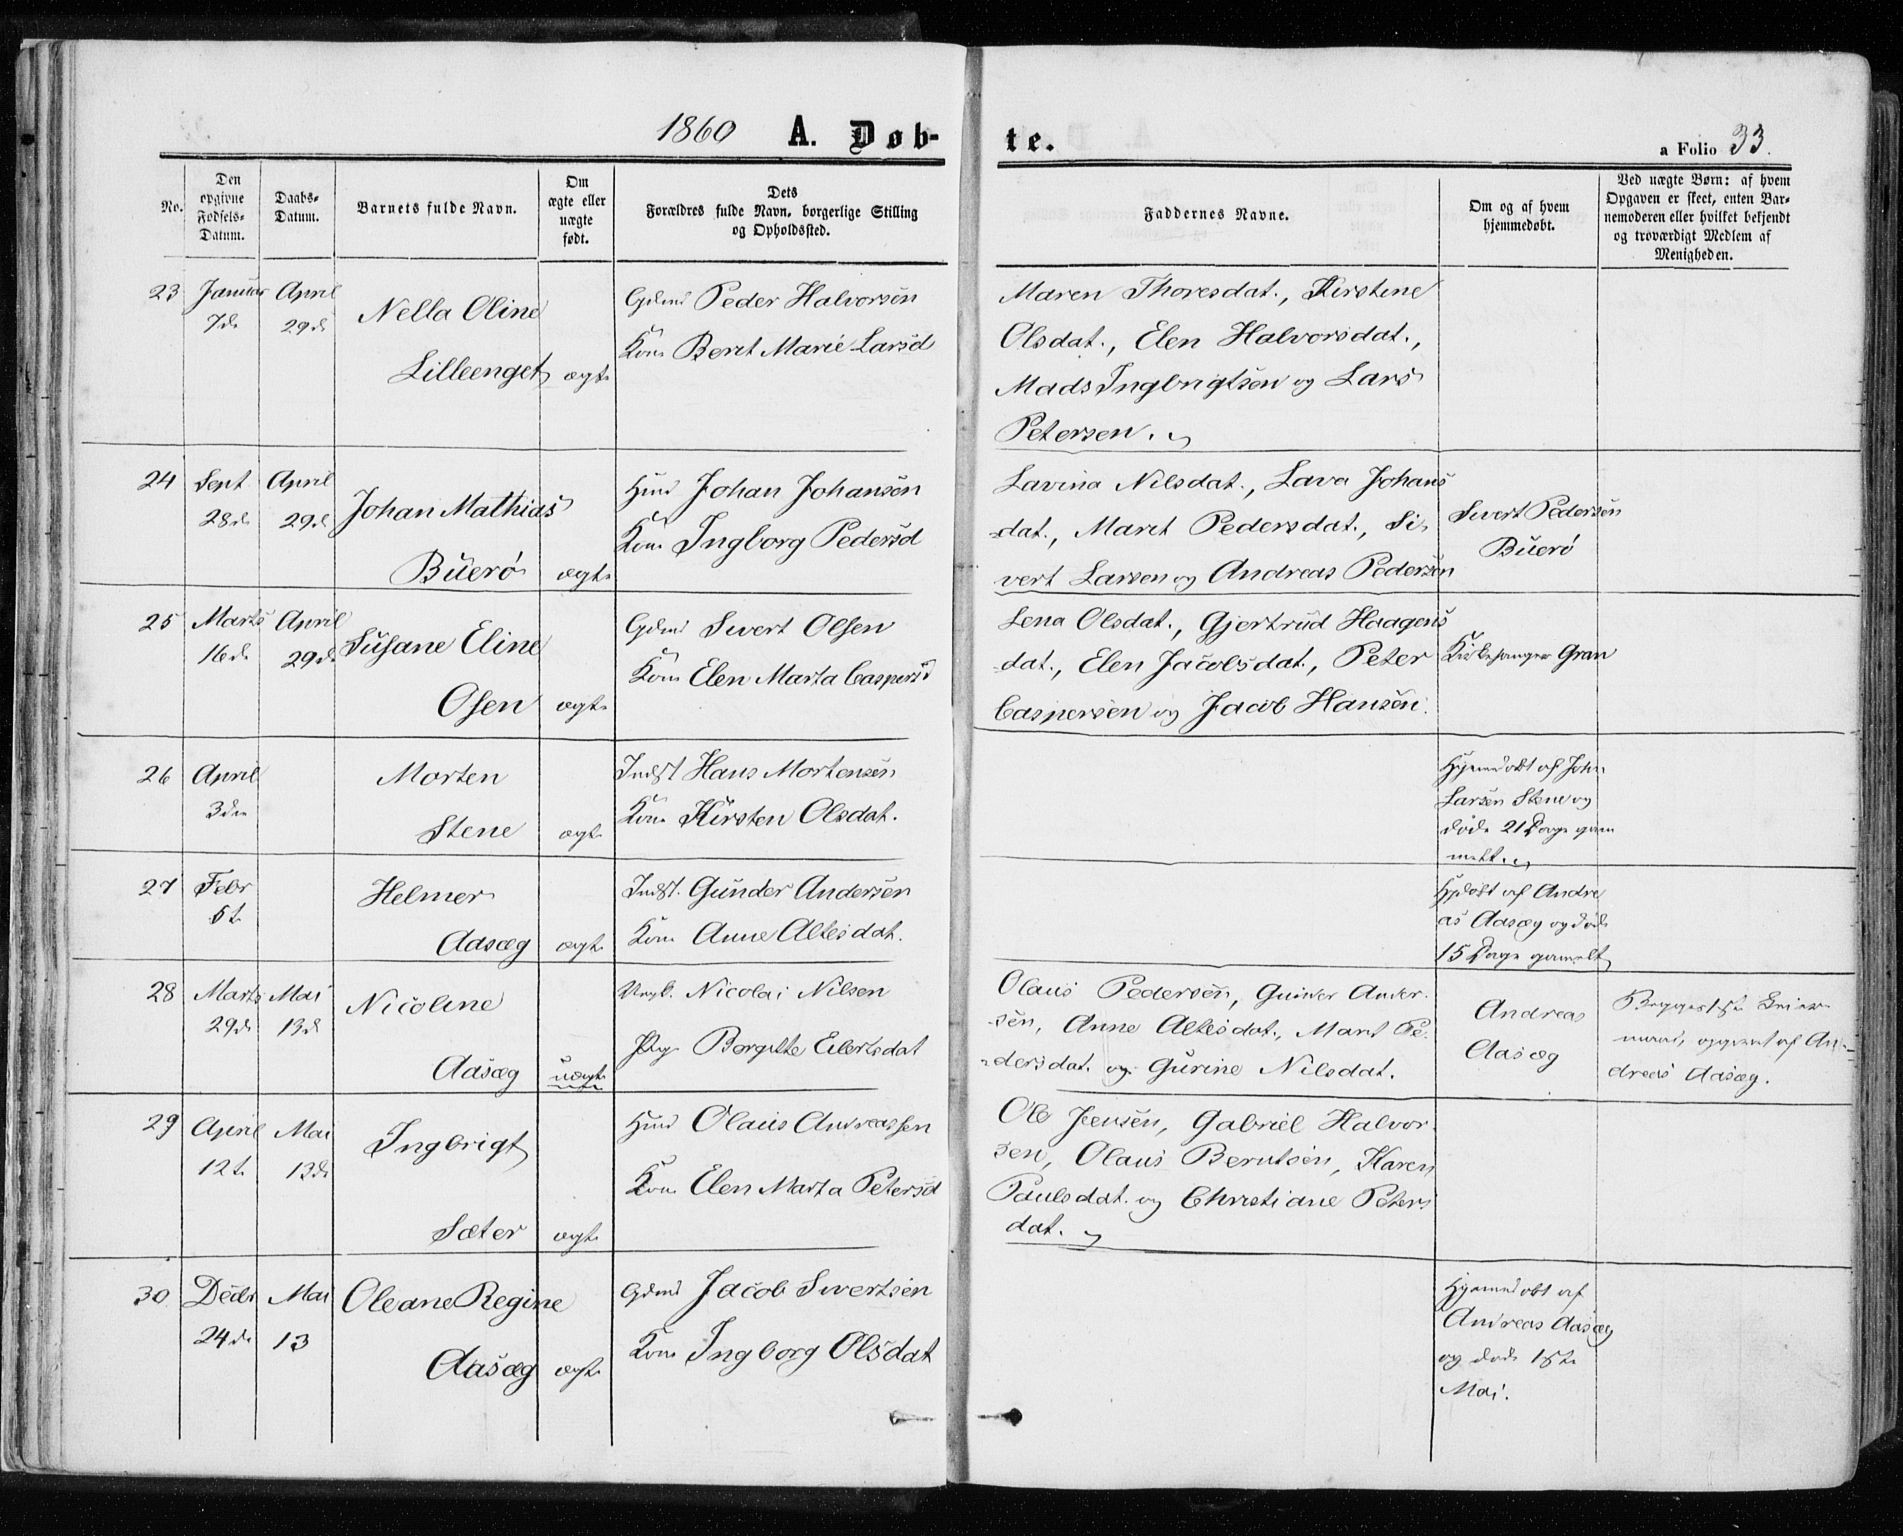 1860 A. Døb-
te.
a Folio 33.
No.
Den
opgivne
Fødsels-
Datum.
Daabs-
Datum.
Barnets fulde Navn.
Om
ægte eller
uægte
født.
Dets
Forældres fulde Navn, borgerlige Stilling
og Opholdssted.
Faddernes Navne.
Om og af hvem
hjemmedøbt.
Ved uægte Børn: af hvem
Opgaven er skeet, enten Bar-
nemoderen eller hvilket bekjendt
og troværdigt Medlem af
Menigheden.
23 Januar 7de April 29de
Nella Oline
Lilleenget ægte
Gdmd Peder Halvorsen
Kone Beret Marie Larsd
Maren Thoresdat., Kirstine
Olsdat., Elen Halvorsdat.,
Mads Ingbrigtsen og Lars
Petersen.
24 Sept 28de April 29de
Johan Mathias
Buerø ægte
Hmd Johan Johansen
Kone Ingborg Pedersd
Lavina Nilsdat., Lava Johans
dat., Maret Pedersdat., Si-
vert Larsen og Andreas Pedersen
Sivert Pedersen
Buerø
25 Marts 16de April 29de
Susane Eline
Osen ægte
Gdmd Sivert Olsen
Kone Elen Marta Caspersd
Lena Olsdat., Gjertrud Haagens
dat., Elen Jacobsdat., Peter
Caspersen og Jacob Hansen.
Kirkesanger Gran
26 April 3die
Morten
Stene ægte
Indst Hans Mortensen
Kone Kirsten Olsdat.
Hjemdøbt af John
Larsen Stene og
døde 21 Dage gam
melt.
27 Febr 5te
Helmer
Aasæg ægte
Indst. Gunder Andersen
Kone Anne Altesdat.
Hjdøbt af Andre
as Aasæg og døde
15 Dage gamelt
28 Marts 29de Mai 13de
Nicoline
Aasæg uægte
Ungk. Nicolai Nilsen
Pige Borgitte Eilertsdat
Olaus Pedersen, Gunder Ander-
sen, Anne Altesdat., Maret Pe-
dersdat. og Gurine Nilsdat.
Andreas
Aasæg
Begges 1ste Leier-
maal, opgivet af An-
dreas Aasæg.
29 April 12te Mai 13de
Ingbrigt
Sæter ægte
Hmd Olaus Andreassen
Kone Elen Marta Petersd
Ole Jensen, Gabriel Halvor
sen, Olaus Berntsen, Karen
Paulsdat. og Christiane Peters
dat.
30 Decbr 24de Mai 13
Oleane Regine
Aasæg ægte
Gdmd Jacob Sivertsen
Kone Ingborg Olsdat
Hjemmdøbt af
Andreas Aasæg
og døde 15te
Mai.